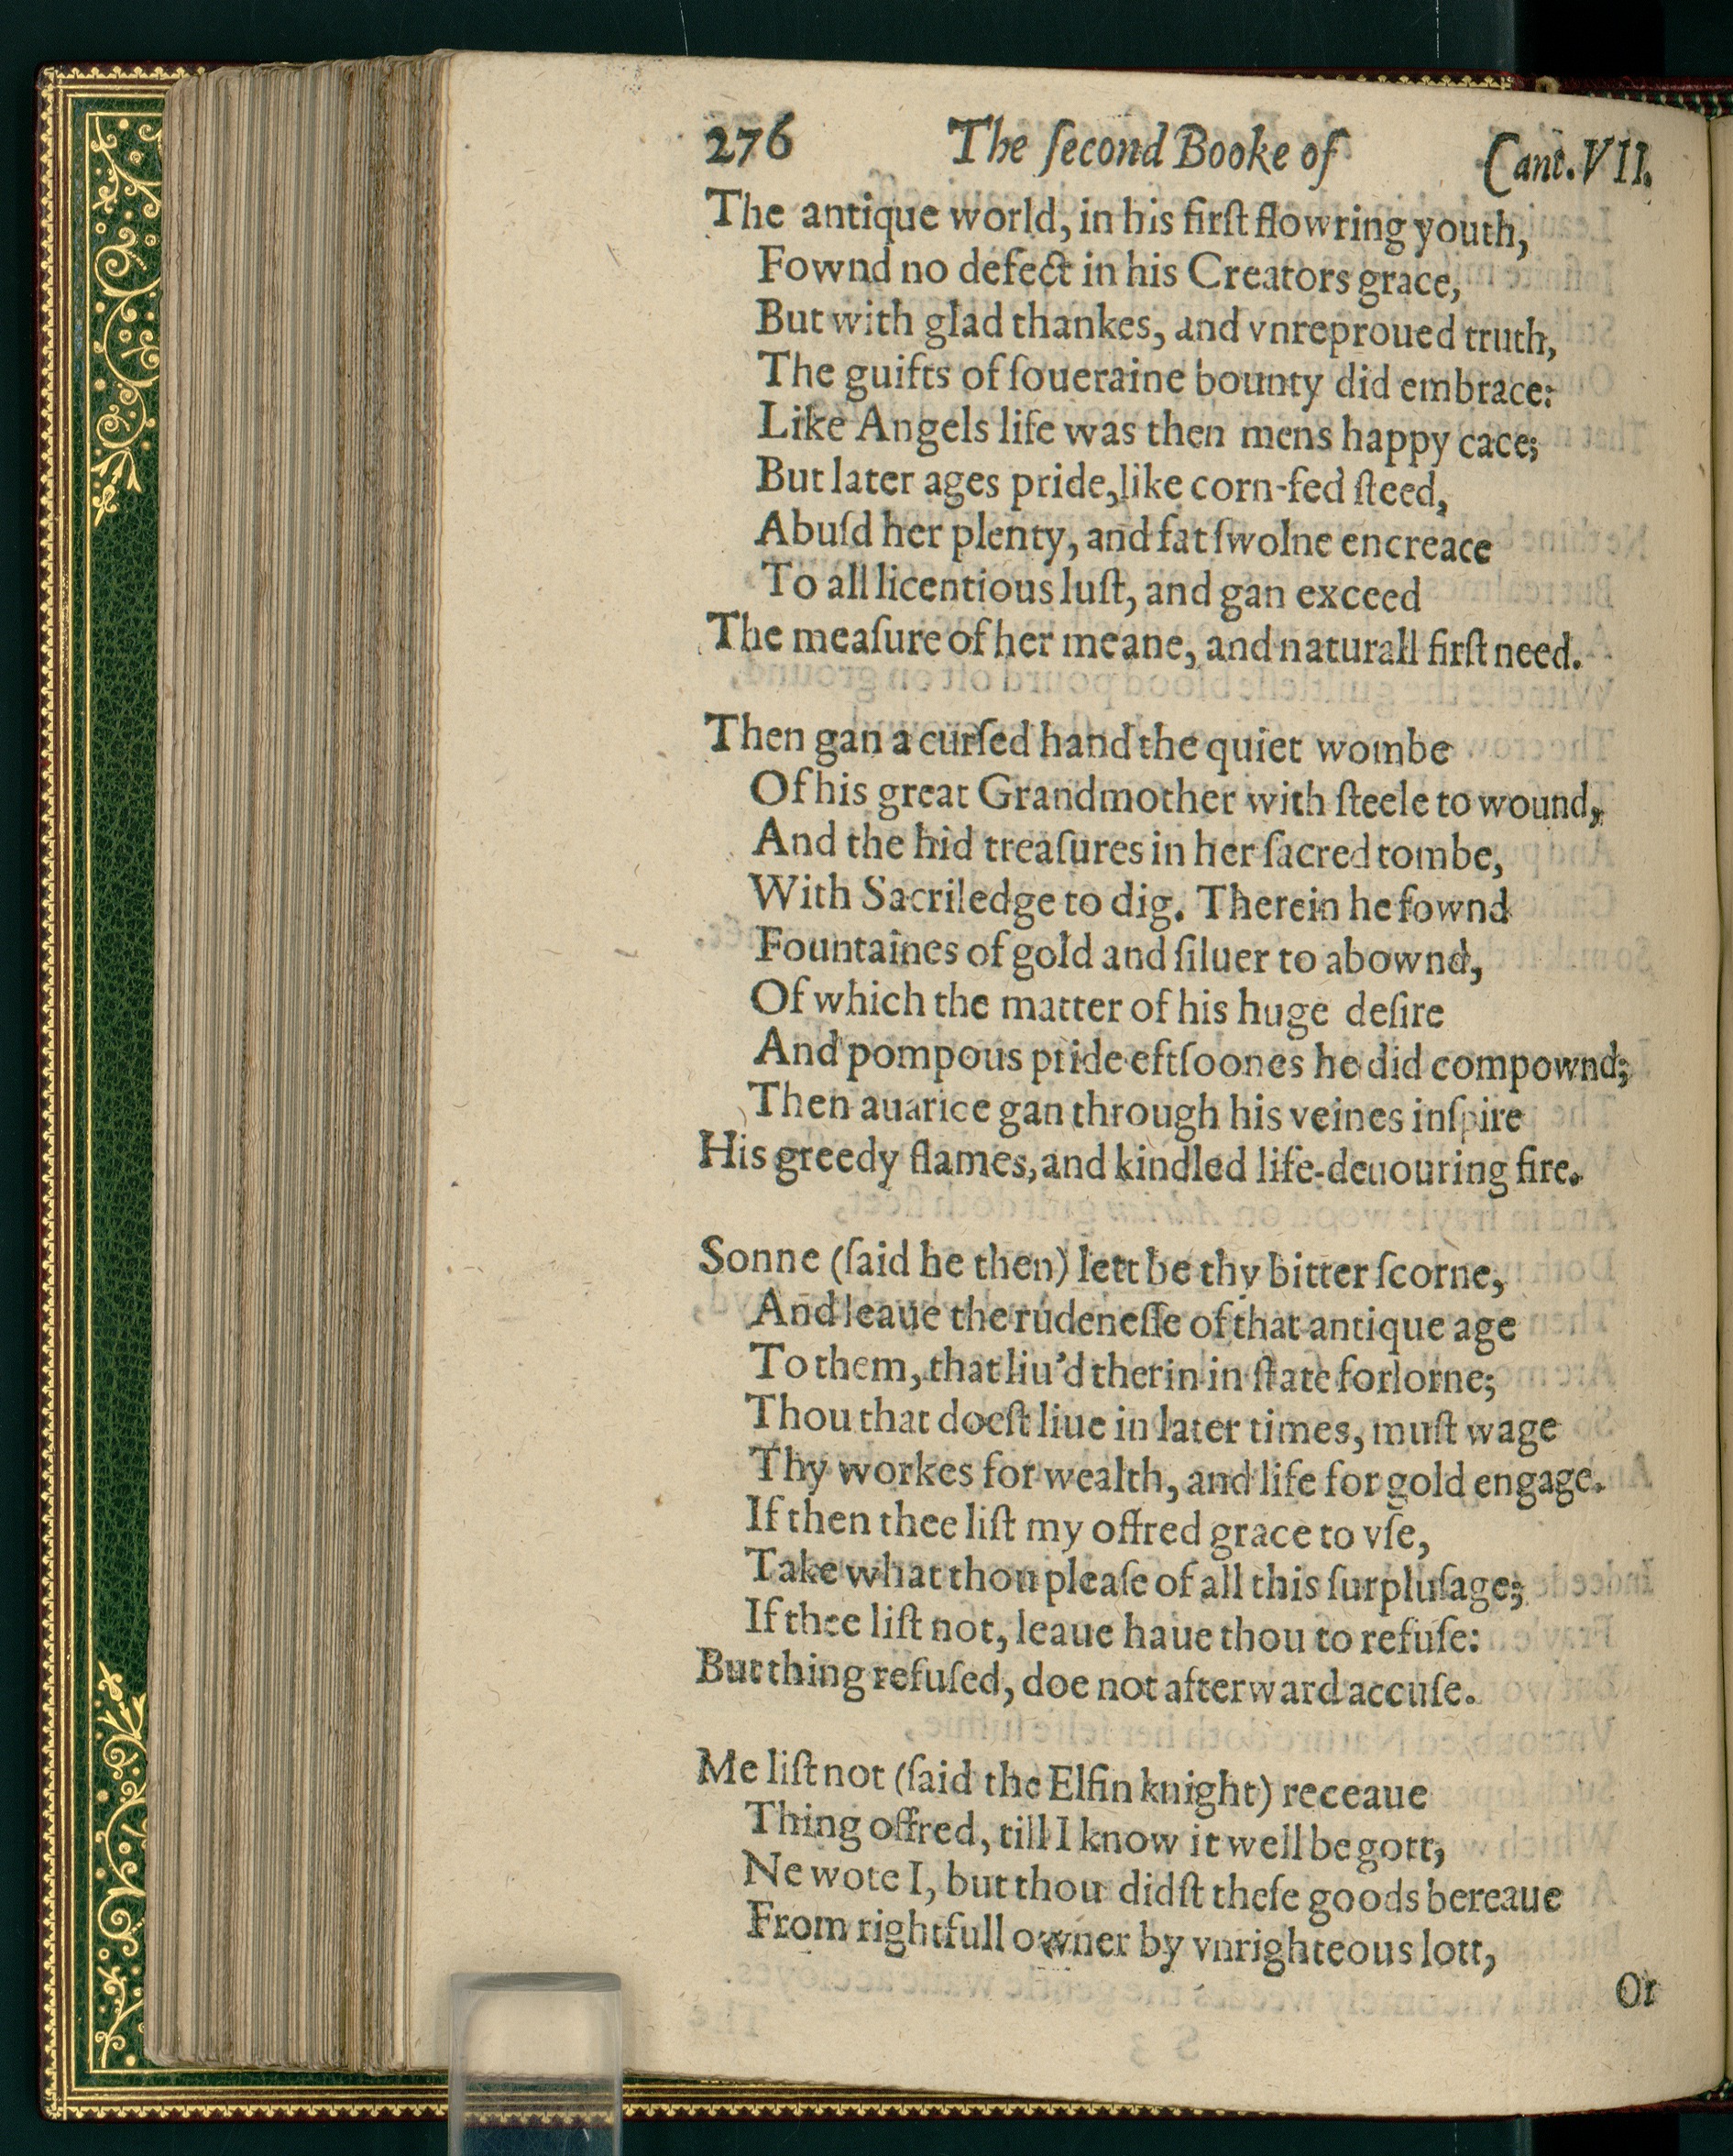 276 The ſecond Booke of Cant. VII.
The antique world, in his firſt flowring youth,
Fownd no defect in his Creators grace,
But with glad thankes, and vnreproued truth,
The guifts of ſoueraine bounty did embrace:
Like Angels life was then mens happy cace;
But later ages pride, like corn-fed ſteed,
Abuſd her plenty, and fat ſwolne encreace
To all licentious luſt, and gan exceed
The meaſure of her meane, and naturall firſt need.
Then gan a curſed hand the quiet wombe
Of his great Grandmother with ſteele to wound,
And the hid treaſures in her ſacred tombe,
With Sacriledge to dig. Therein he fownd
Fountaines of gold and ſiluer to abownd,
Of which the matter of his huge deſire
And pompous pride eftſoones he did compownd;
Then auarice gan through his veines inſpire
His greedy flames, and kindled life-deuouring fire.
Sonne (ſaid he then) lett be thy bitter ſcorne,
And leaue the rudeneſſe of that antique age
To them, that liu'd therin in ſtate forlorne;
Thou that doeſt liue in later times, muſt wage
Thy workes for wealth, and life for gold engage.
If then thee liſt my offred grace to vſe,
Take what thou pleaſe of all this ſurpluſage;
If thee liſt not, leaue haue thou to refuſe:
But thing refuſed, doe not afterward accuſe.
Me liſt not (ſaid the Elfin knight) receaue
Thing offred, till I know it well be gott,
Ne wote I, but thou didſt theſe goods bereaue
From rightfull owner by vnrighteous lott,
Or